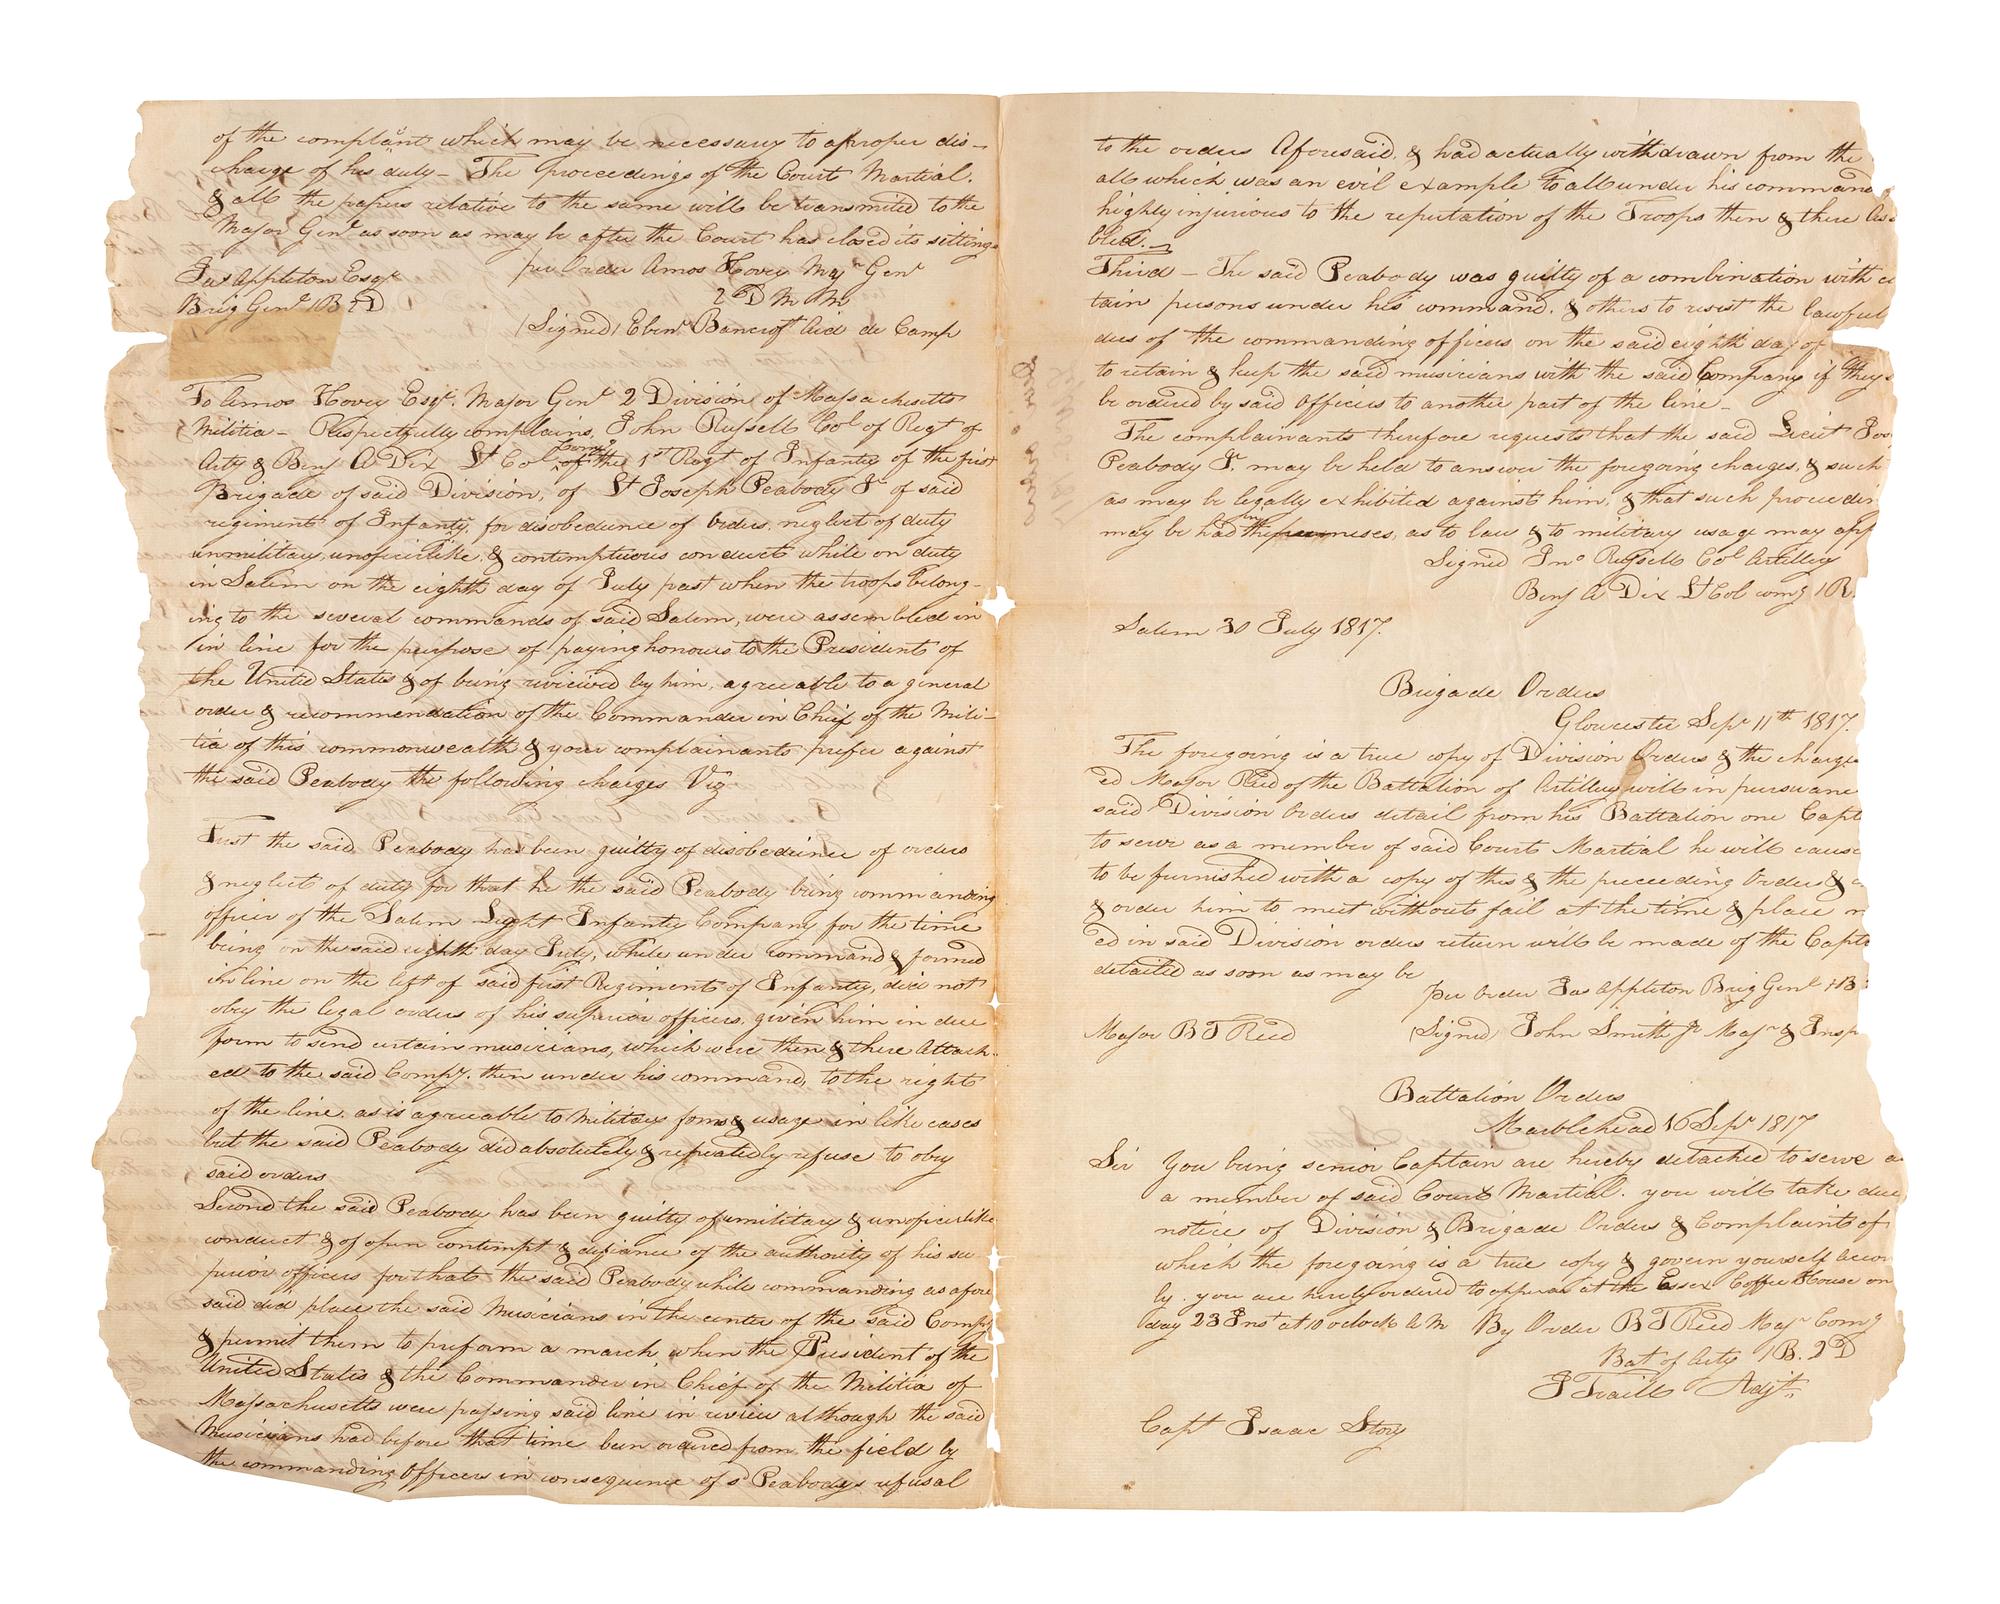 of the complaint which may be necessary to a proper dis-
charge of his duty - The proceedings of the Court Martial.
& all the papers relative to the same will be transmited to the
Major Genl as soon as may be after the Court has closed its settings
Jas Appleton Esqr
Brig Genl 1B 2D
per Order Amos Hovey Majr Genl
2D M M
(Signed) Ebenr Bancroft Aid de Camp
To Amos Hovey Esqr. Major Genl 2 Division of Massachusetts
Militia - Respectfully complains, John Russell Col of Regt of
Arty & Benj A Dix Lt Col Comg of the 1st Regt of Infantry of the first
Brigade of said Division, of Lt Joseph Peabody Jr of said
regiment of Infanty, for disobedience of Orders, neglect of duty
unmilitary, unoficerlike, & contemptuous conduct while on duty
in Salem on the eighth day of July past when the troops belong-
ing to the several commands of said Salem, were assembled in
in line for the purpose of paying honours to the President of
the United States & of being reviewed by him, agreeable to a general
order & recommendation of the Commander in Chief of the Mili-
tia of this commonwealth & your complainants prefer against
the said Peabody the following charges Viz
First the said Peabody has been guilty of disobedience of orders
& neglect of duty for that he the said Peabody being commanding
officer of the Salem Light Infantry Company for the time
being on the said eighth day July, while under command & formed
in line on the left of said first Regiment of Infantry, did not
obey the legal orders of his superior officers, given him in due
form to send certain musicians, which were then & there attach-
ed to the said Compy. then under his command, to the right
of the line, as is agreeable to military forms & usage in like cases
but the said Peabody did absolutely & repeatedly refuse to obey
said orders
Second the said Peabody has been guilty of unmilitary & unoficerlike
conduct & of open contempt & defiance of the authority of his su-
perior officers for that the said Peabody while commanding as afore
said did place the said Musicians in the center of the said Compy
& permit them to preform a march when the President of the
United States & the Commander in Chief of the Militia of
Massachusetts were passing said line in review although the said
Musicians had before that time been ordered from the field by
the commanding Officers in consequence of sd Peabodys refusal
to the orders Aforesaid, & had actually withdrawn from the
all which was an evil example to all under his command
highly injurious to the reputation of the Troops then & there Ass
bled.-
Third - The said Peabody was guilty of a combination with ce
tain persons under his command, & others to resist the lawful
ders of the commanding officers on the said eighth day of
to retain & keep the said musicians with the said Company if they s
be ordered by said Officers to another part of the line -
The complainants therefore requests that the said Lieut Jos
Peabody Jr. may be held to answer the foregoing charges, & such
as may be legally exhibited against him, & that such proceedin
may be had in the premises, as to law & to military usage may app
Signed Jno Russell Col Artillery
Benj A Dix Lt Col comg 1R.
Salem 30 July 1817.
Brigade Orders
Gloucester Sepr 11th 1817.
The foregoing is a true copy of Division Orders & the charge
ed Major Reed of the Battalion of Artillery will in pursuanc
said Division Orders detail from his Battalion one Capt
to serve as a member of said Court Martial he will cause
to be furnished with a copy of this & the preceeding Orders &
& order him to meet without fail at the time & place n
ed in said Division orders return will be made of the Capt
detailed as soon as may be
per order Jas Appleton Brig Genl 1B
Major B T Reed
(Signed) John Smith Jr Majr & Insp
Battalion Orders
Marblehead 16 Sepr 1817
Sir You being senior Captain are hereby detached to serve a
a member of said Court Martial. you will take due
notice of Division & Brigade Orders & Complaints of
which the foregoing is a true copy & govern yourself accor
ly. you are hereby ordered to appear at the Essex Coffee House on
day 23 Inst at 10 oclock A M By Order B T Reed Majr Comg
Bat of Arty 1B. 2D
J Traill Adjt.
Capt Isaac Story